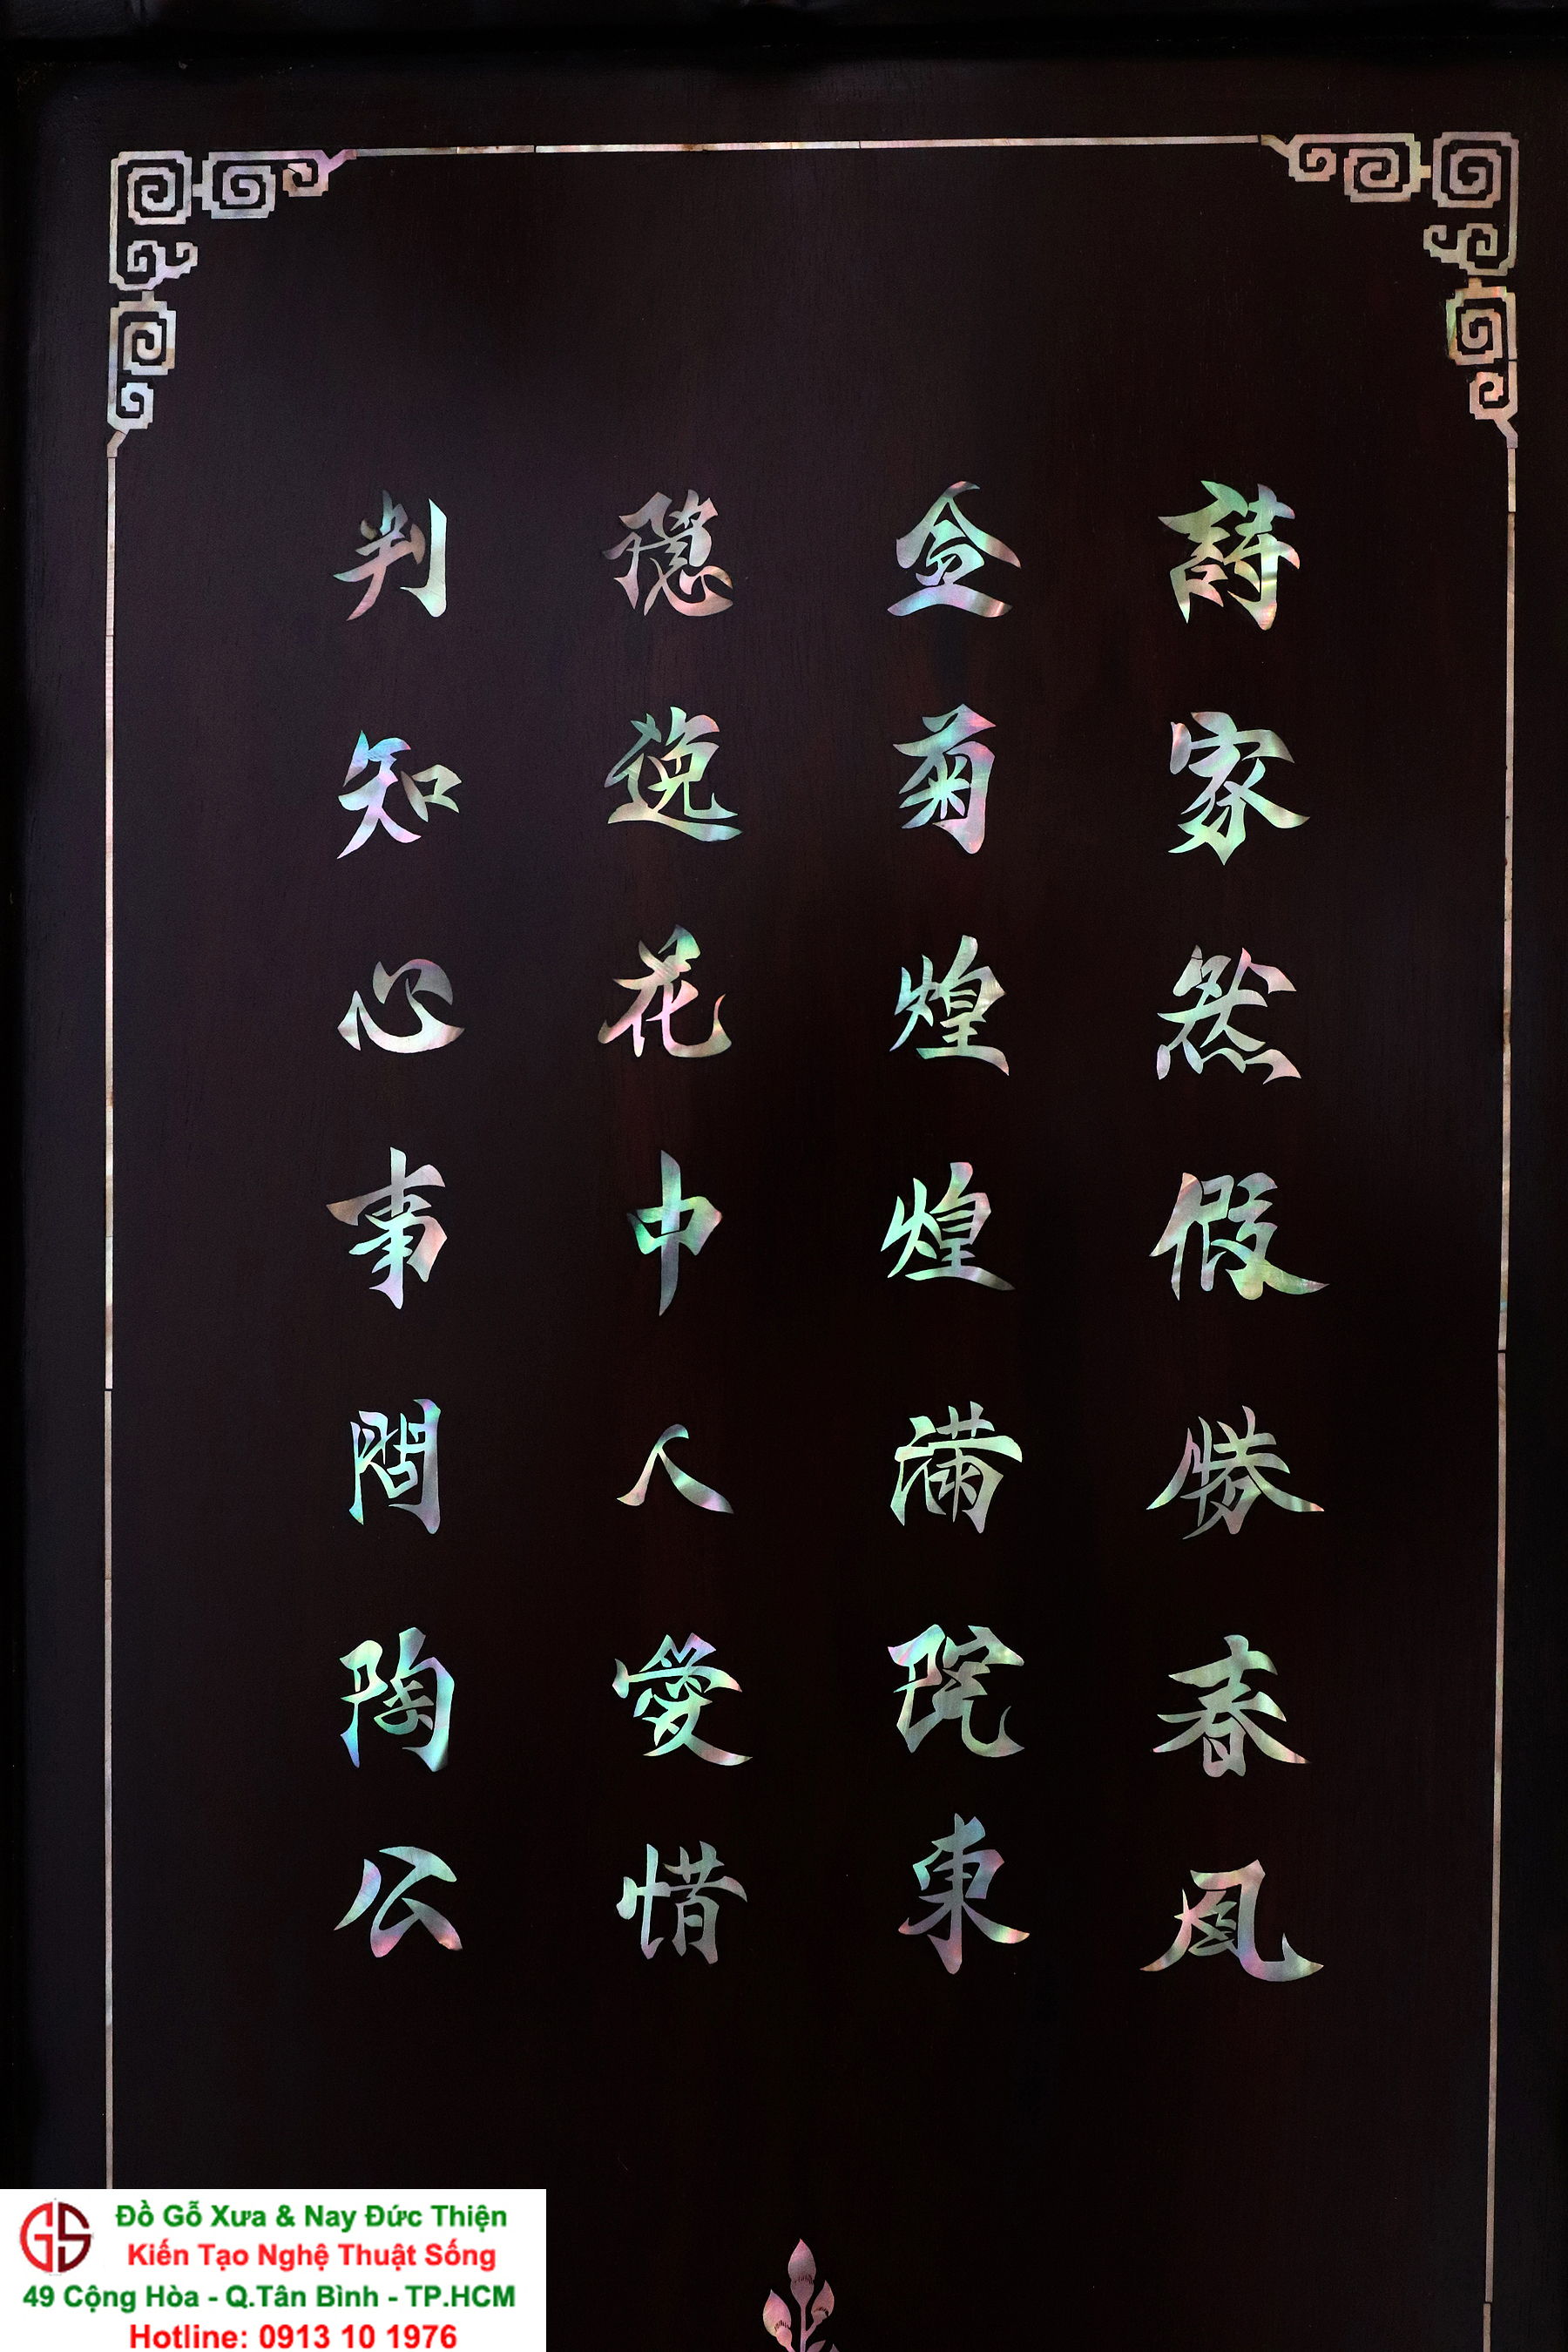 詩家然假勝春風
金菊煌煌滿院東
隱逸花中人愛惜
判知心事問陶公
GS
Đồ Gỗ Xưa & Nay Đức Thiện
Kiến Tạo Nghệ Thuật Sống
49 Cộng Hòa - Q.Tân Bình - TP.HCM
Hotline: 0913 10 1976